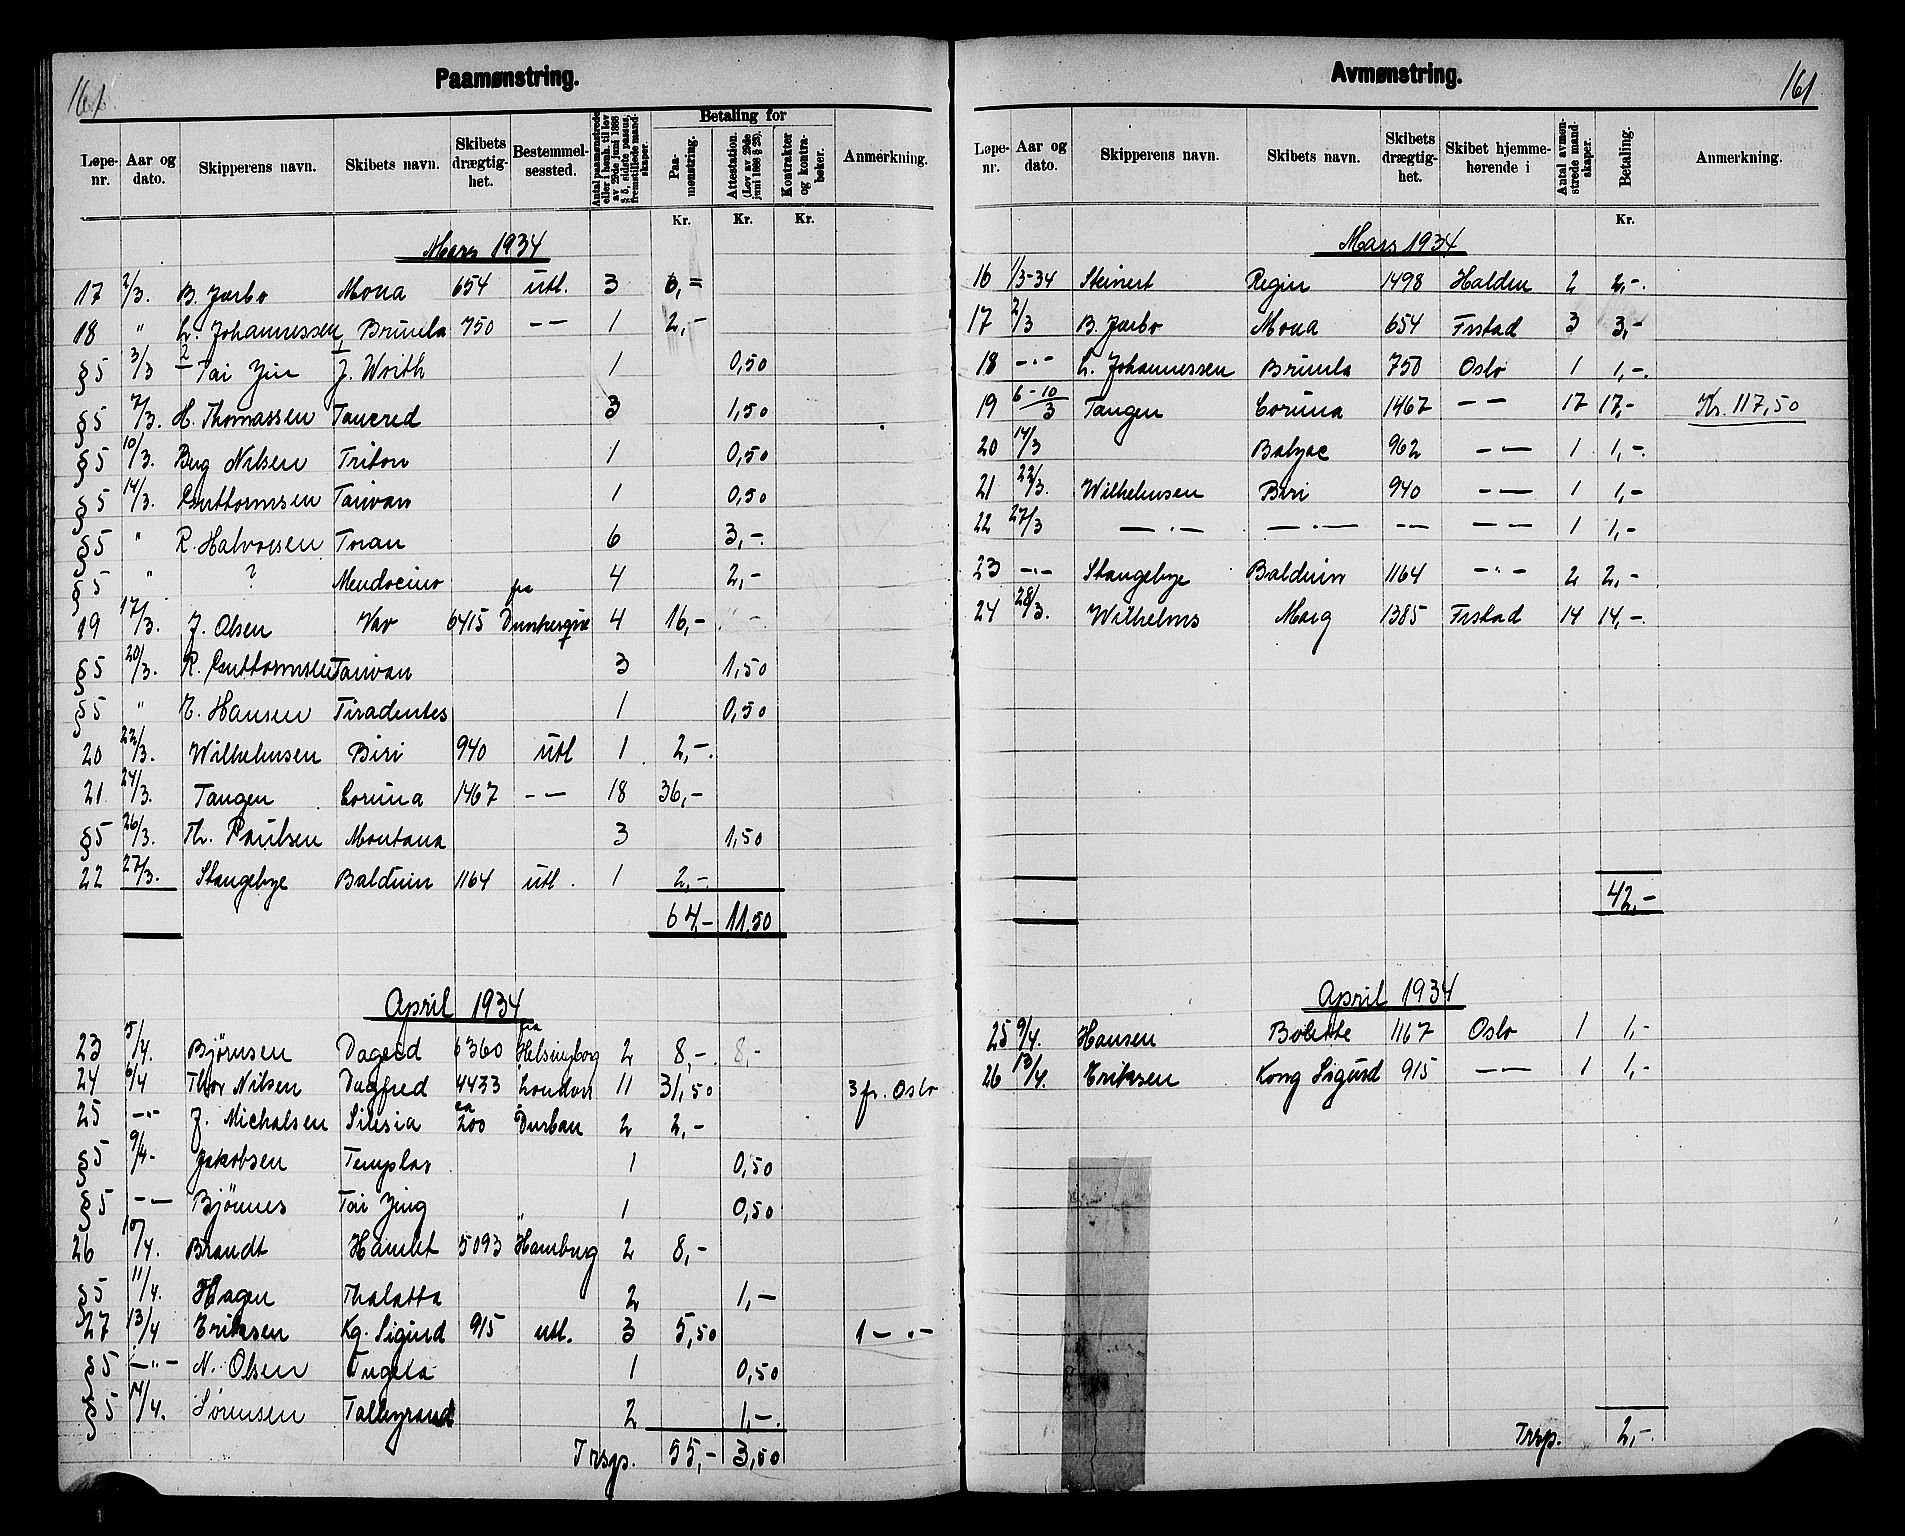 161
Paamønstring.
Løpe-nr. Aar og dato. Skipperens navn. Skibets navn. Skibets drægtig-het. Bestemmel-sessted. Antal paamønstrede eller i henh. til lov av 29de juni 1888 § 5, sidste passus, fremstillede mand-skaper. Betaling for Paa-mønstring. Attestation. (Lov av 29de juni 1888 § 25). Kontrakter og kontra-bøker. Anmerkning.
Kr. Kr. Kr.
Mars 1934
17 2/3. B. Jærbo Mona 654 utl. 3 6,=
18 " L. Johannessen Brumla 750 -- 1 2,-
§5 3/3 Tai Yin J. Worth 1 0,50
§5 7/3. H. Thomassen Tancred 3 1,50
§5 10/3. Berg Nilsen Triton 1 0,50
§5 14/3. Guttormsen Taiwan 1 0,50
§5 " R. Halvorsen Toran 6 3,-
§5 " ? Mendocino 4 2,-
19 17/3. J. Olsen Var 6415 fra Dunkerque 4 16,-
§5 20/3. R. Guttormsen Taiwan 3 1,50
§5 " E. Hansen Tiradentes 1 0,50
20 22/3. Wilhelmsen Biri 940 utl 1 2,-
21 24/3. Tangen Coruna 1467 -- 18 36,-
§5 26/3. Th. Paulsen Montana 3 1,50
22 27/3. Stangebye Balduin 1164 utl. 1 2,-
64,- 11.50
April 1934
23 5/4. Bjørnsen Dageid 6360 fra Helsingborg 2 8,- 8,-
24 6/4 Thor Nilsen Dagfred 4433 London 11 31,50 3 fr. Oslo
25 -"- J. Michalsen Silesia ca 200 Durban 2 2,-
§5 9/4- Jakobsen Templar 1 0,50
§5 -- Bjönnes Tai Ying 1 0,50
26 10/4. Brandt Hamlet 5093 " Hamburg 2 8,-
§5 11/4. Hagen Thalatta 2 1,-
27 13/4 Eriksen Kg. Sigurd 915 utl. 3 5,50 1 - "-
§5 -"- N. Olsen Tugela 1 0,50
§5 14/4. Sørensen Talleyrand 2 1,-
Trsp. 55,- 3,50
161
Avmønstring.
Løpe-nr. Aar og dato. Skipperens navn. Skibets navn. Skibets drægtig-het. Skibet hjemme-hørende i Antal avmøn-strede mand-skaper. Betaling. Anmerkning.
Kr.
Mars 1934
16 1/3-34 Steinert Regin 1498 Halden 2 2,-.
17 2/3 B. Jærbo Mona 654 Frstad 3 3,-
18 -"- L. Johannessen Brumla 750 Oslo 1 1,-.
19 6-10/3 Tangen Coruna 1467 -- 17 17,- Kr. 117,50
20 14/3 Balzac 962 -- 1 1,-.
21 22/3. Wilhelmsen Biri 940 -- 1 1,-
22 27/3 -"- -"- -- -- 1 1,-
23 -"- Stangebye Balduin 1164 -"- 2 2,-
24 28/3. Wilhelms Marg 1385 Frstad 14 14,-.
42,-
April 1934
25 9/4. Hansen Bolette 1167 Oslo 1 1,-
26 13/4. Eriksen Kong Sigurd 915 -- 1 1,-
Trsp. 2,-.